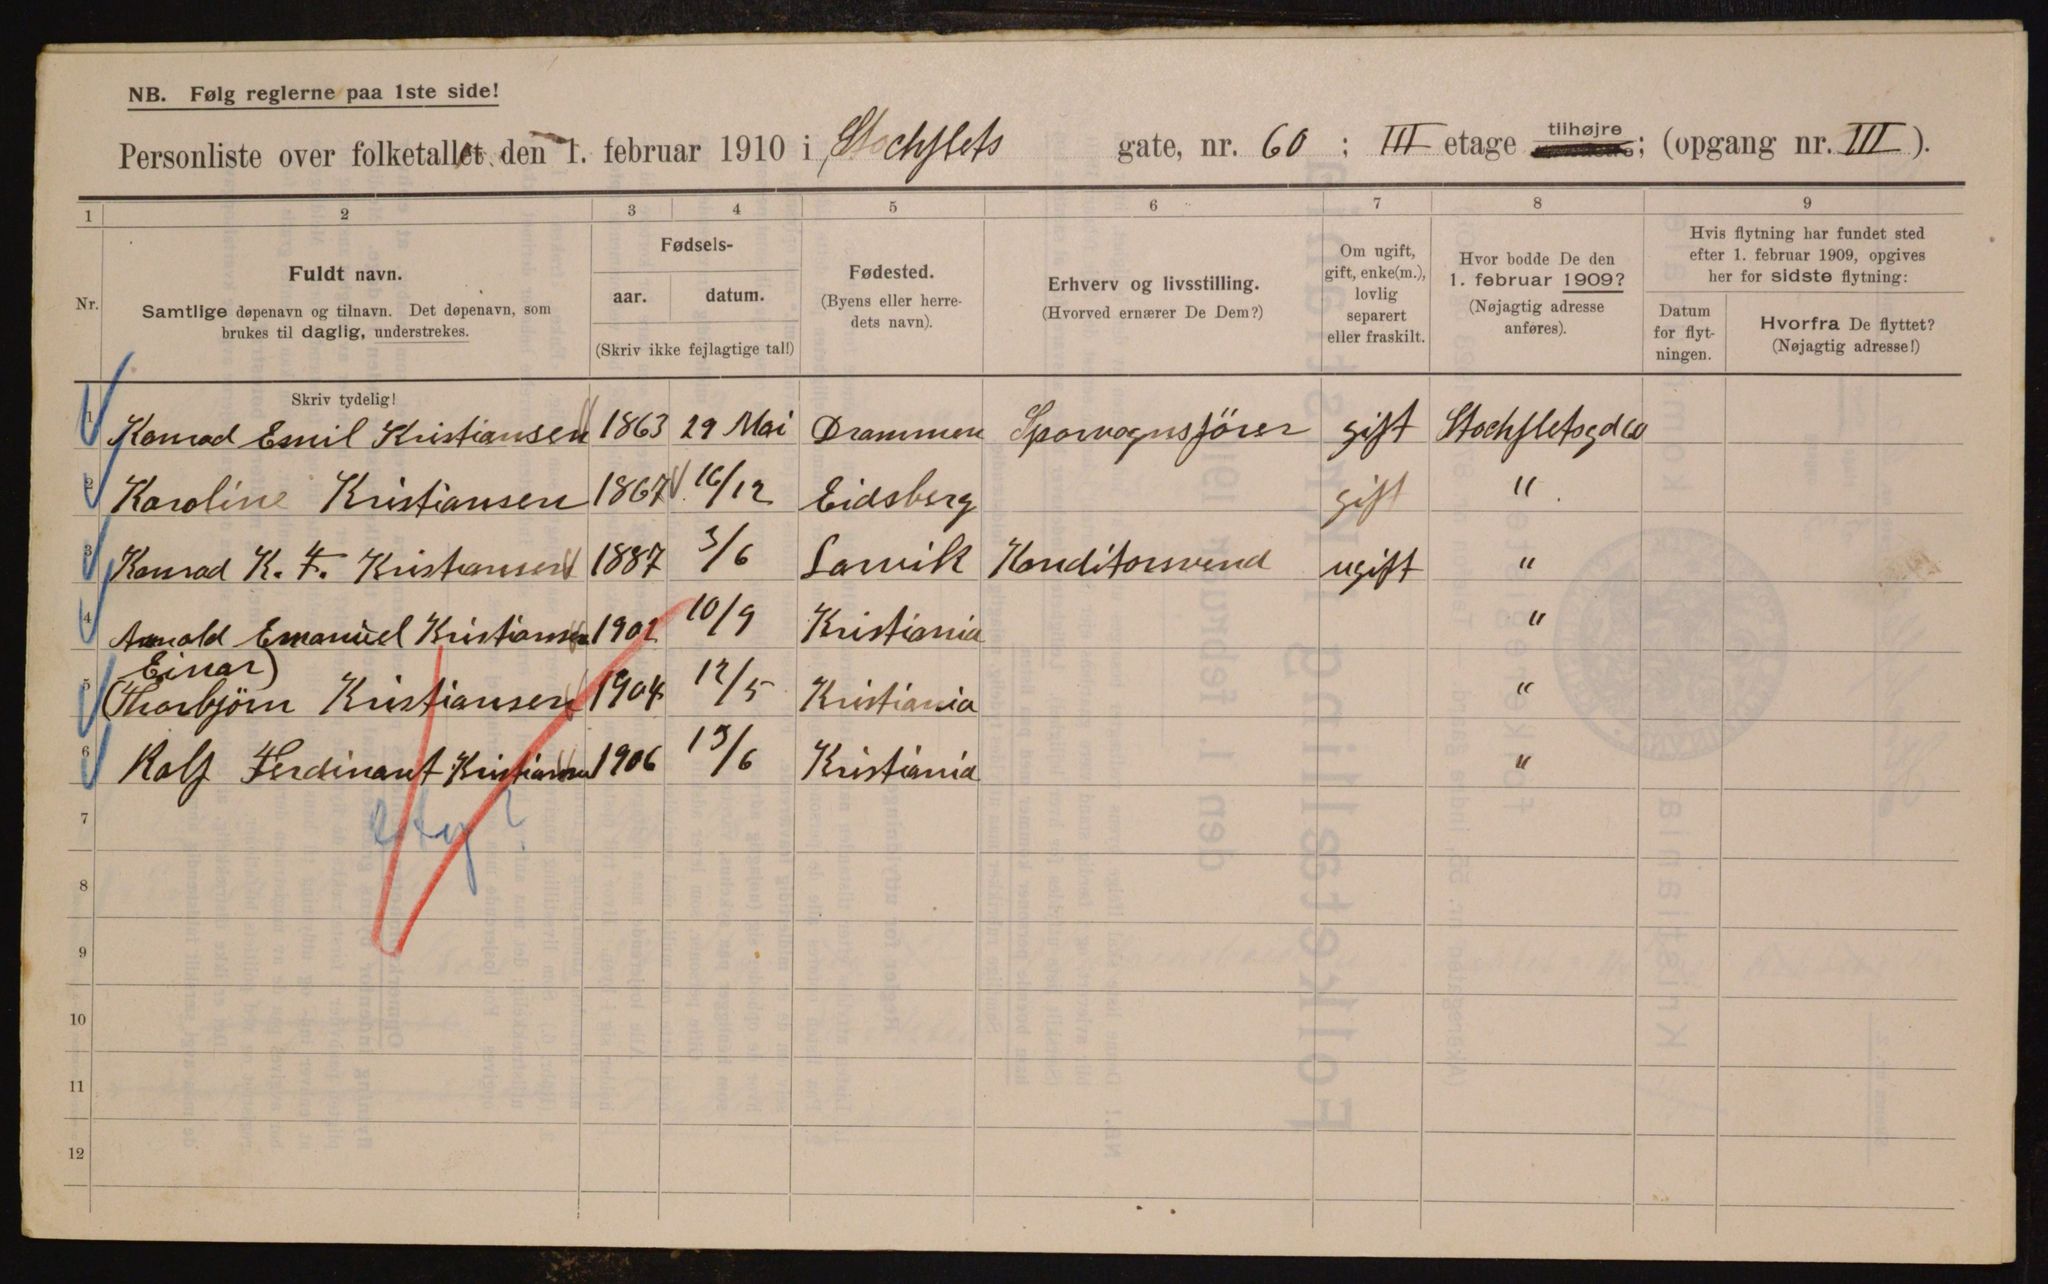 NB. Følg reglerne paa 1ste side!
Personliste over folketallet den 1. februar 1910 i Stochflets gate, nr. 60 ; III etage tilhøjre ; (opgang nr. III ).
1 2 3 4 5 6 7 8 9
Nr.
Fuldt navn.
Samtlige døpenavn og tilnavn. Det døpenavn, som
brukes til daglig, understrekes.
Fødsels-
aar. datum.
(Skriv ikke fejlagtige tal!)
Fødested.
(Byens eller herre-
dets navn).
Erhverv og livsstilling.
(Hvorved ernærer De Dem?)
Om ugift,
gift, enke(m.),
lovlig
separert
eller fraskilt.
Hvor bodde De den
1. februar 1909?
(Nøjagtig adresse
anføres).
Hvis flytning har fundet sted
efter 1. februar 1909, opgives
her for sidste flytning:
Datum
for flyt-
ningen.
Hvorfra De flyttet?
(Nøjagtig adresse!)
Skriv tydelig!
1 Konrad Emil Kristiansen 1863 29 Mai Drammen Sporvognsfører gift Stochfletsgd 60
2 Karoline Kristiansen 1867 16/12 Eidsberg gift "
3 Konrad K. F. Kristiansen 1887 3/6 Larvik Konditorsvend ugift "
4 Arnold Emanuel Kristiansen 1902 10/9 Kristiania "
Einar)
5 (Thorbjörn Kristiansen 1904 12/5 Kristiania "
6 Rolf Ferdinant Kristiansen 1906 13/6 Kristiania "
7
8
9
10
11
12